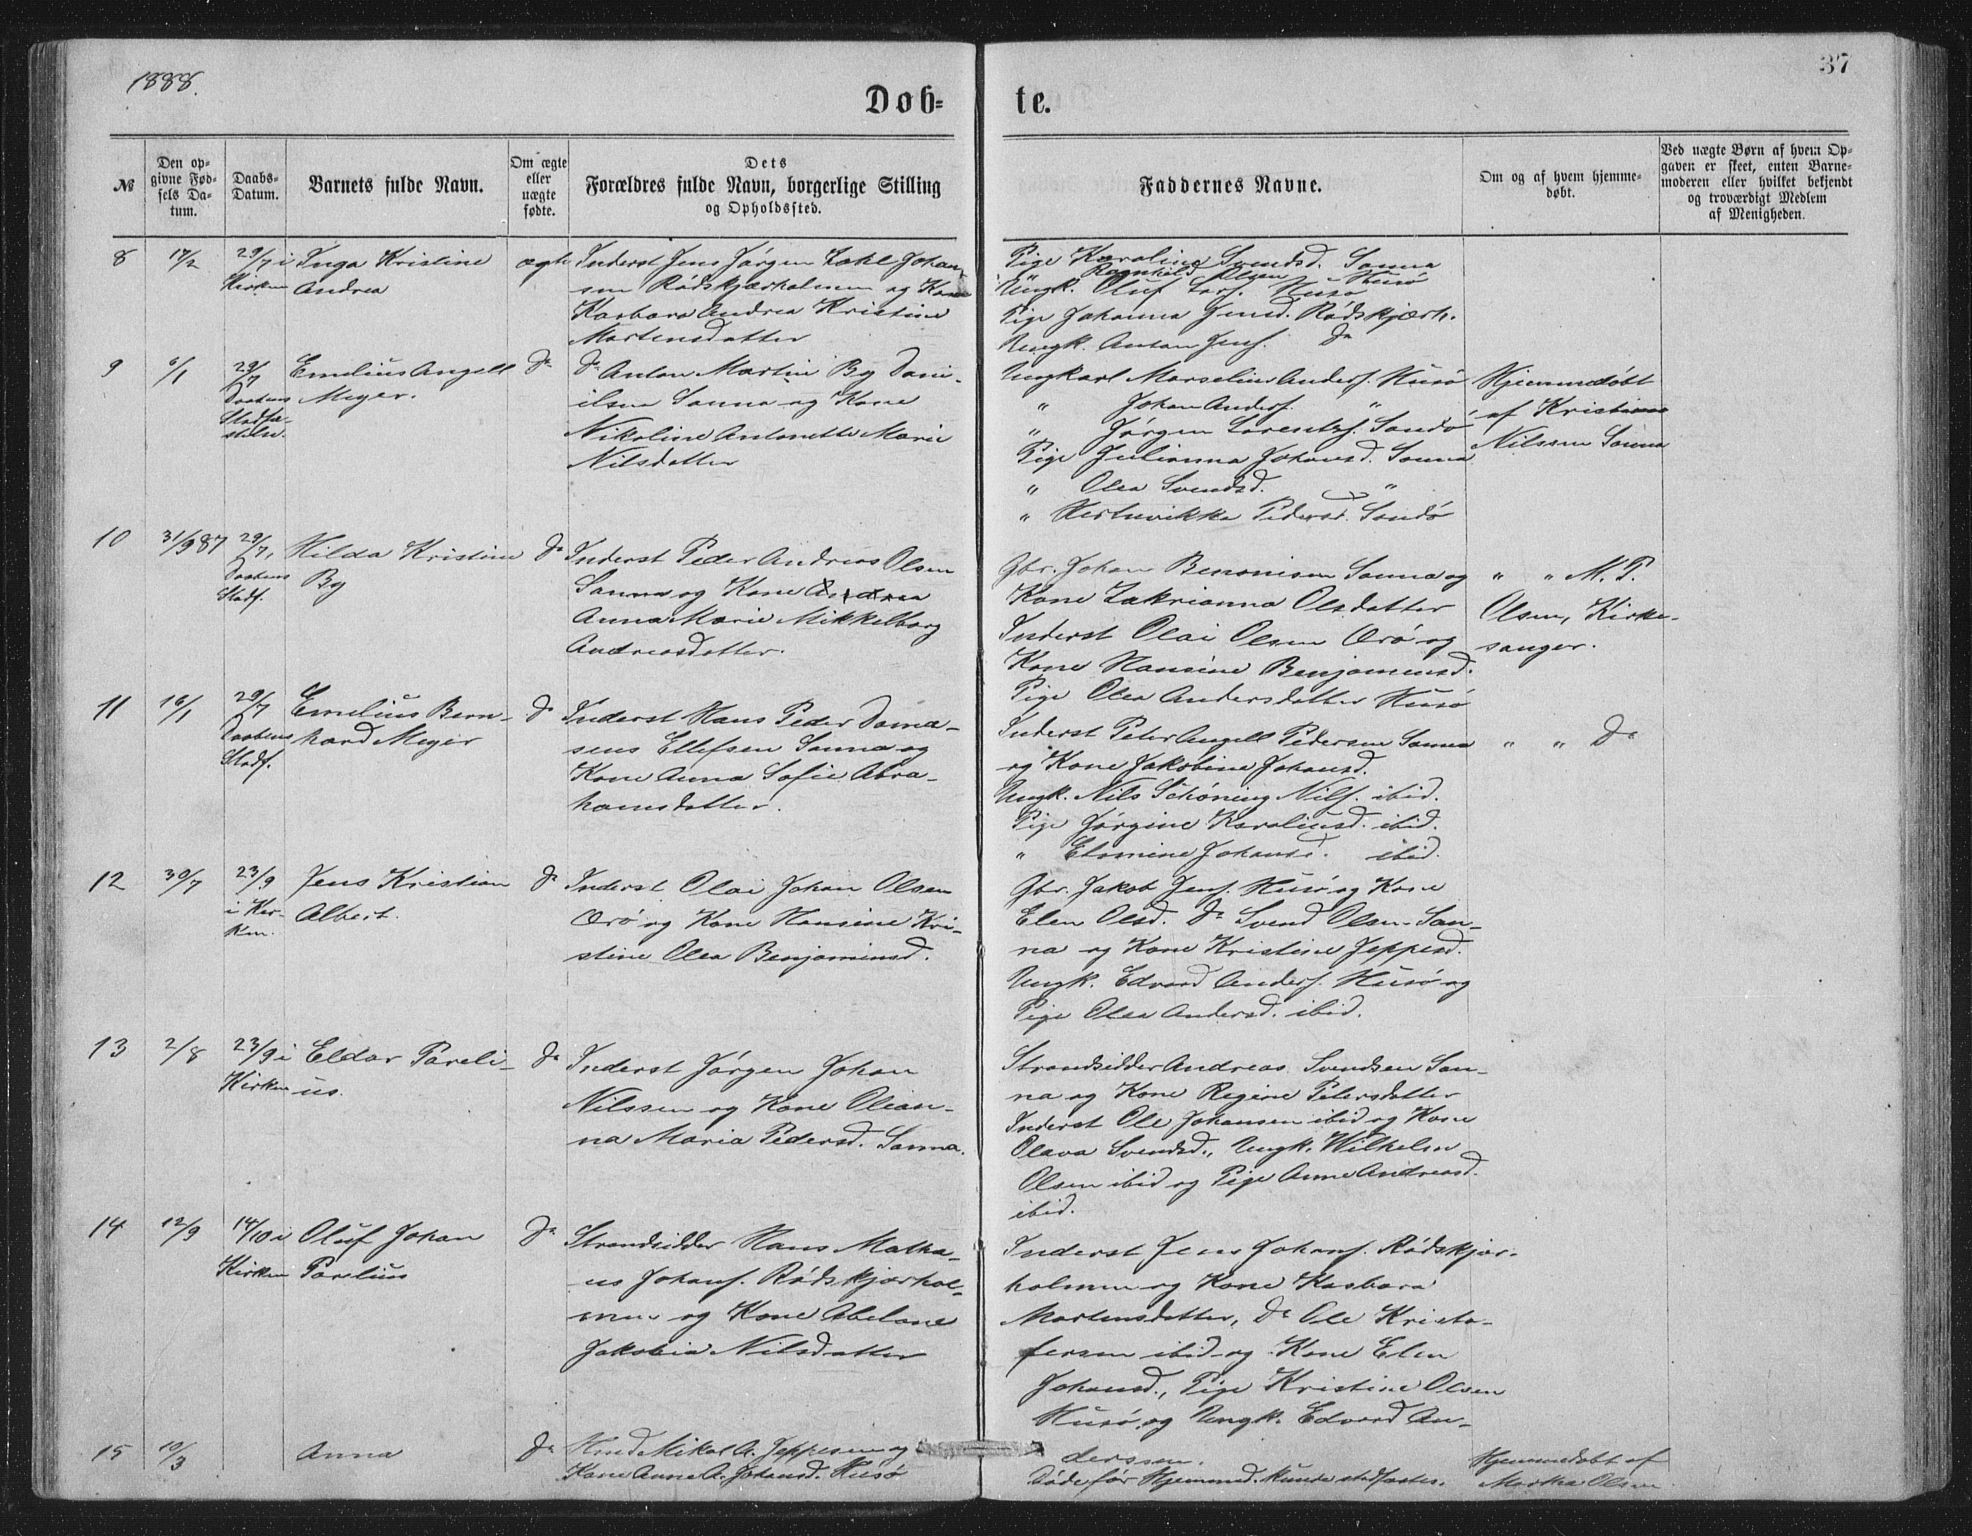 1888.
37
Døb=
te.
№
Den op=
givne Fød=
sels Da=
tum.
Daabs=
Datum.
Barnets fulde Navn.
Om ægte
eller
uægte
fødte.
Dets
Forældres fulde Navn, borgerlige Stilling
og Opholdssted.
Faddernes Navne.
Om og af hvem hjemme=
døbt.
Ved uægte Børn af hvem Op=
gaven er skeet, enten Barne=
moderen eller hvilket bekjendt
og troværdigt Medlem
af Menigheden.
8
17/2
29/7 i
Kirken
Inga Kristine
Andrea
ægte
Inderst Jens Jørgen Zahl Johan-
sen Rødskjærholmen og Kone
Karbara Andrea Kristine
Mortensdatter
Pige Karoline Svendsd. Sanna
Ragnhild Olsen Husø
Ungk. Oluf Husø
Pige Johanna Jensd. Rødskjærh.
Ungk. Anton Jens. do
9
6/1
29/7
Daabens
Stadfæ-
stelse.
Emelius Angell
Meyer.
do
do Anton Martin By Dani-
ilsen Sanna og Kone
Nikoline Antonette Marie
Nilsdatter
Ungkarl Marselius Anders. Husø
" Johan Anders. "
" Jørgen Lorents. Sandø
Pige Julianna Johansd. Sanna
" Olea Svendsd. "
" Pedersd. Sandø
Hjemmedøbt
af Kristiane
Nilssen Sanna
10
31/9 87
29/7,
Daabens
Stadf.
Hilda Kristine
By
do
Inderst Peder Andreas Olsen
Sanna og Kone Andrea
Anna Marie Mikkelborg
Andreasdatter.
Gbr. Johan Benonisen Sanna og
Kone Zakrianna Olsdatter
Inderst Olai Olsen Ørø og
Kone Hansine Benjaminsd.
Pige Olea Andersdatter Husø
" " M. P.
Olsen, Kirke-
sanger.
11
16/1
29/7
Daabens
Stadf.
Emelius Bern-
hard Meyer
do
Inderst Hans Peder Dama-
sens Ellefsen Sanna og
Kone Anna Sofie Abra-
hamsdatter.
Inderst Peter Angell Pedersen Sanna
og Kone Jakobine Johansd.
Ungk. Nils Schøning Nils. ibid.
Pige Jørgine Karoliusd. ibid.
" Elomine Johansd. ibid.
" " do
12
30/7
23/9
i Kir-
ken.
Jens Kristian
Albert.
do
Inderst Olai Johan Olsen
Ørø og Kone Hansine Kri-
stine Olea Benjaminsd.
Gbr. Jakob Jens. Husø og Kone
Elen Olsd. do Svend Olsen San-
na og Kone Kristine Jeppesd.
Ungk. Edvard Anders. Husø og
Pige Olea Andersd. ibid.
13
2/8
23/9 i
Kirken
Eldar Pareli-
us.
do
Inderst Jørgen Johan
Nilssen og Kone Olian-
na Maria Pedersd. Sanna.
Strandsidder Andreas Svendsen San-
na og Kone Regine Petersdatter
Inderst Ole Johansen ibid og Kone
Olava Svendsd., Ungk. Wilhelm
Olsen ibid og Pige Anne Andreasd.
ibid.
14
12/9
14/10 i
Kirken
Oluf Johan
Parelius
do
Strandsidder Hans Matha-
us Johans. Rødskjærhol-
men og Kone Abelone
Jakobia Nilsdatter
Inderst Jens Johans. Rødskjær-
holmen og Kone Kasbara
Mortensdatter, do Ole Kristo-
fersen ibid og Kone Elen
Johansd., Pige Kristine Olsen
Husø og Ungk. Edvard An-
derssen.
15
10/3
Anna
do
Smed Mikal A. Jeppesen og
Kone Anne A. Johansd. Husø
Døde før Hjemmed. kunde stadfæstes.
Hjemmedøbt af
Martha Olsen